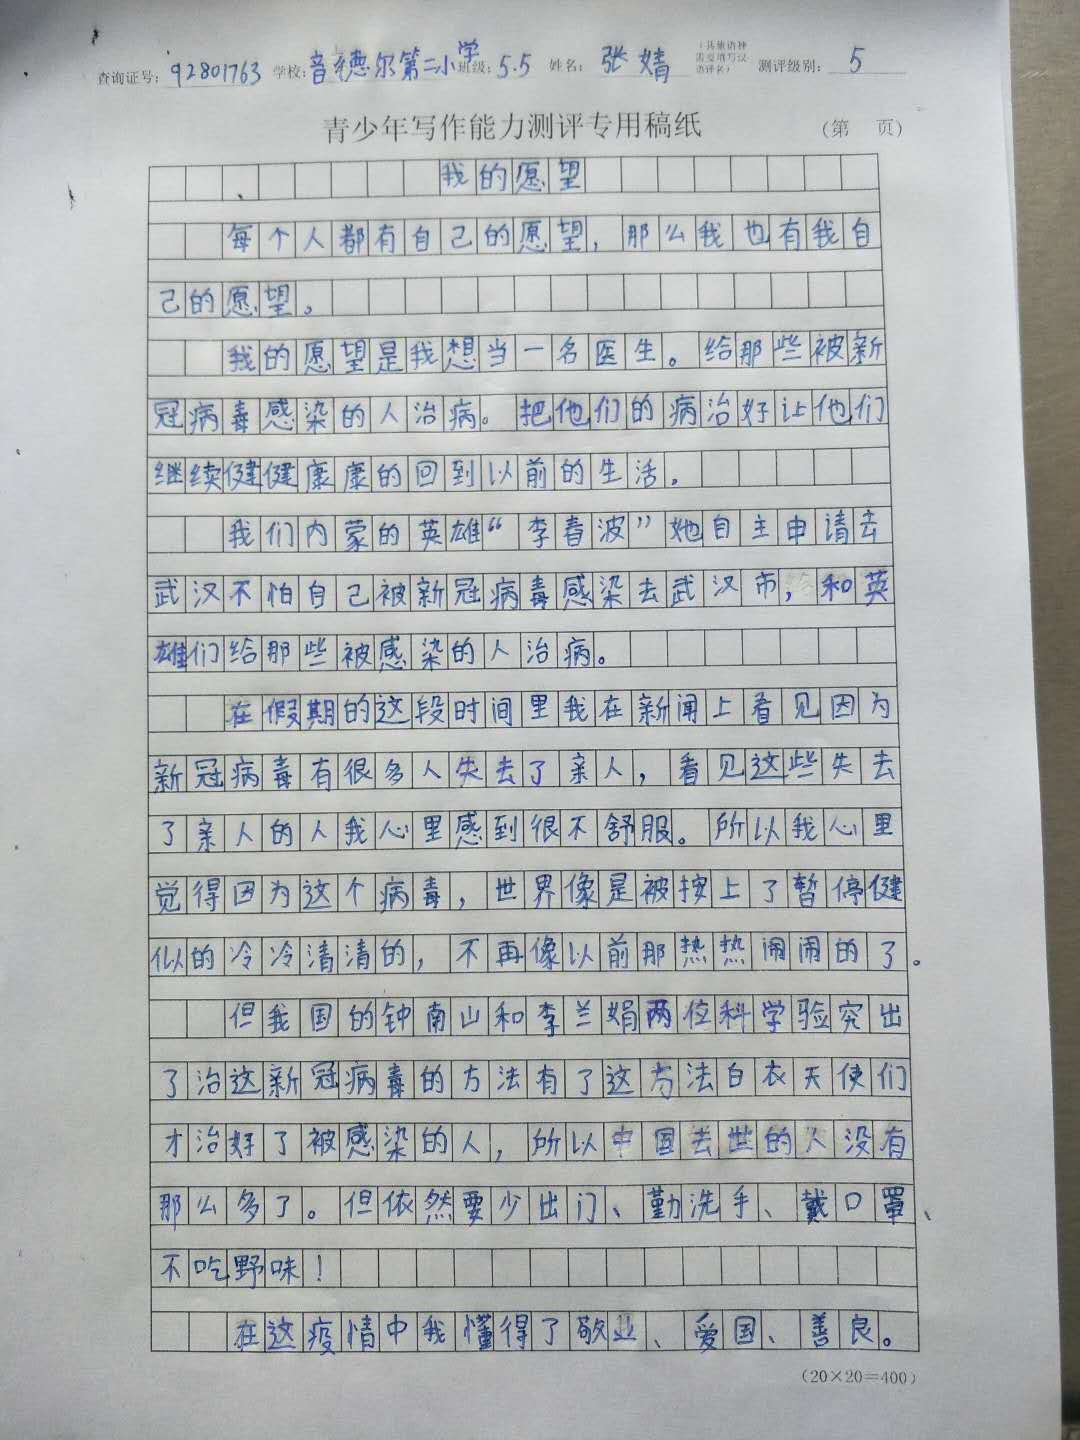 查询证号：92801763 学校：音德尔第二小学 班级：5.5 姓名：张婧 测评级别：5
青少年写作能力测评专用稿纸 （第 页）
我的愿望
每个人都有自己的愿望，那么我也有我自
己的愿望。
我的愿望是我想当一名医生。给那些被新
冠病毒感染的人治病。把他们的病治好让他们
继续健健康康的回到以前的生活。
我们内蒙的英雄“李春波”她自主申请去
武汉不怕自己被新冠病毒感染去武汉市，和英
雄们给那些被感染的人治病。
在假期的这段时间里我在新闻上看见因为
新冠病毒有很多人失去了亲人，看见这些失去
了亲人的人我心里感到很不舒服。所以我心里
觉得因为这个病毒，世界像是被按上了暂停健
似的冷冷清清的，不再像以前那热热闹闹的了。
但我国的钟南山和李兰娟两位科学验究出
了治这新冠病毒的方法有了这方法白衣天使们
才治好了被感染的人，所以中国去世的人没有
那么多了。但依然要少出门、勤洗手、戴口罩、
不吃野味！
在这疫情中我懂得了敬业、爱国、善良。
（20×20＝400）